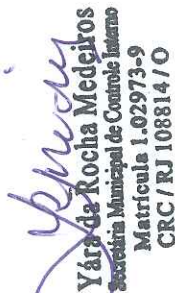 Yara da Rocha Medeiros
Secretária Municipal de Controle Interno
Matrícula 1.02973-9
CRC / RJ 108814 / O